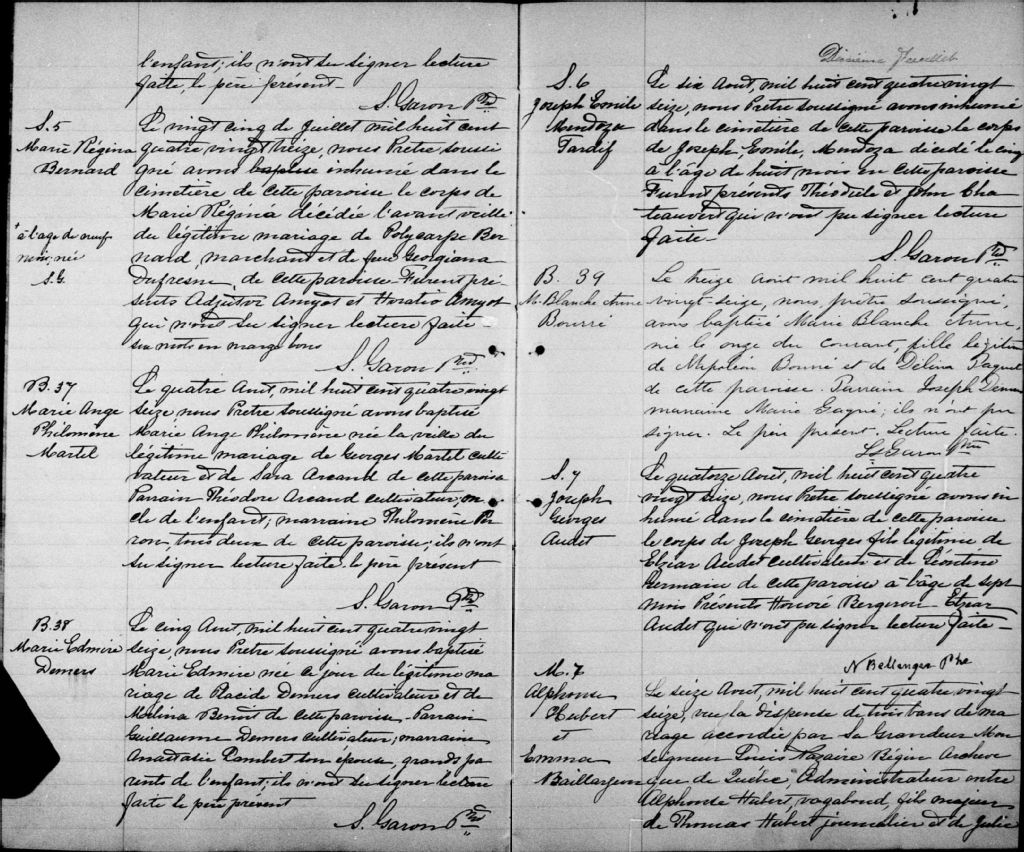 l'enfant; ils n'ont su signer lecture
faite, le père présent—
S. Garon Ptre
S. 5
Marie Régina
Bernard
Le vingt cinq de Juillet mil huit cent
quatre vingt seize, nous Prêtre soussi
gné avons baptisé inhumé dans le
cimetière de cette paroisse le corps de
Marie Régina décédée l'avant veille
à l'age de neuf
mois, née
S.G.
du légitime mariage de Polycarpe Ber
nard, marchand et de feue Georgiana
Dufresne, de cette paroisse Furent pré
sents Adjutor Amyot et Horatio Amyot
qui n'ont su signer lecture faite—
six mots en marge bons
S. Garon Ptre
B. 37
Marie Ange
Philomène
Martel
Le quatre Aout, mil huit cent quatre vingt
seize nous Prêtre soussigné avons baptisé
Marie Ange Philomène née la veille du
légitime mariage de Georges Martel culti
vateur et de Sara Arcand de cette paroisse
Parrain Théodore Arcand cultivateur, on
cle de l'enfant; marraine Philomène
ron, tous deux de cette paroisse; ils n'ont
su signer lecture faite. le père présent
S. Garon Ptre
B. 38
Marie Edmire
Demers
Le cinq Aout, mil huit cent quatre vingt
seize, nous Prêtre soussigné avons baptisé
Marie Edmire née ce jour du légitime ma
riage de Placide Demers cultivateur et de
Melina Benoit de cette paroisse. Parrain
Guillaume Demers cultivateur; marraine
Anastasie Lambert son épouse, grands pa
rents de l'enfant; ils n'ont su signer lecture
faite le père présent
S. Garon Ptre
Dixième Feuillet
S. 6
Joseph Emile
Mendoza
Tardif
Le six Aout, mil huit cent quatre vingt
seize, nous Prêtre soussigné avons inhumé
dans le cimetière de cette paroisse le corps
de Joseph, Emile, Mendoza décédé le cinq
à l'âge de huit mois en cette paroisse
Furent présents Théodule et John Cha
teauvert qui n'ont pu signer lecture
faite—
S. Garon Ptre
B. 39
M. Blanche Anne
Bourré
Le treize août mil huit cent quatre
vingt-seize, nous, prêtre soussigné,
avons baptisé Marie Blanche Anne,
née le onze du courant, fille légitime
de Napoléon Bourré et de Délina Paquet
de cette paroisse. Parrain Joseph
marraine Marie Gagné; ils n'ont pu
signer. Le père présent. Lecture faite.
Ls Garon Ptre
S. 7
Joseph
Georges
Audet
Le quatorze Aout, mil huit cent quatre
vingt seize, nous Prêtre soussigné avons in
humé dans le cimetière de cette paroisse
le corps de Joseph Georges fils légitime de
Elzéar Audet cultivateur et de Léontine
Germain de cette paroisse à l'âge de sept
mois Présents Honoré Bergeron Elzéar
Audet qui n'ont pu signer lecture faite—
N Bellanger Ptre
M. 7
Alphonse
Hubert
et
Emma
Baillargeon
Le seize Aout, mil huit cent quatre vingt
seize, vu la dispense de trois bans de ma
riage accordée par sa Grandeur Mon
seigneur Louis Nazaire Bégin Archevê
que de Québec, Administrateur entre
Alphonse Hubert, vagabond, fils majeur
de Thomas Hubert journalier et de Julie